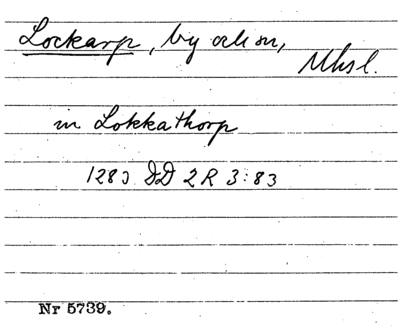 Lockarp, by och sn,
Mhsl.
in Lokkathorp
1283 DD 2R 3:83
Nr 5739.